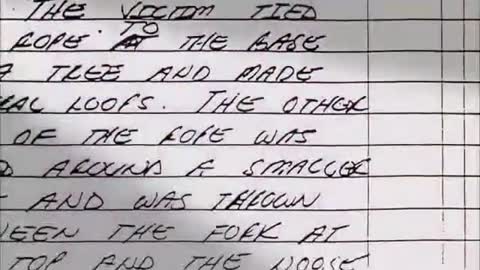 THE VICTIM TIED
ROPE TO THE BASE
A TREE AND MADE
LOOPS. THE OTHER
OF THE ROPE WAS
AROUND A SMALLER
AND WAS THROWN
THE FORK AT
TOP AND THE NOOSE